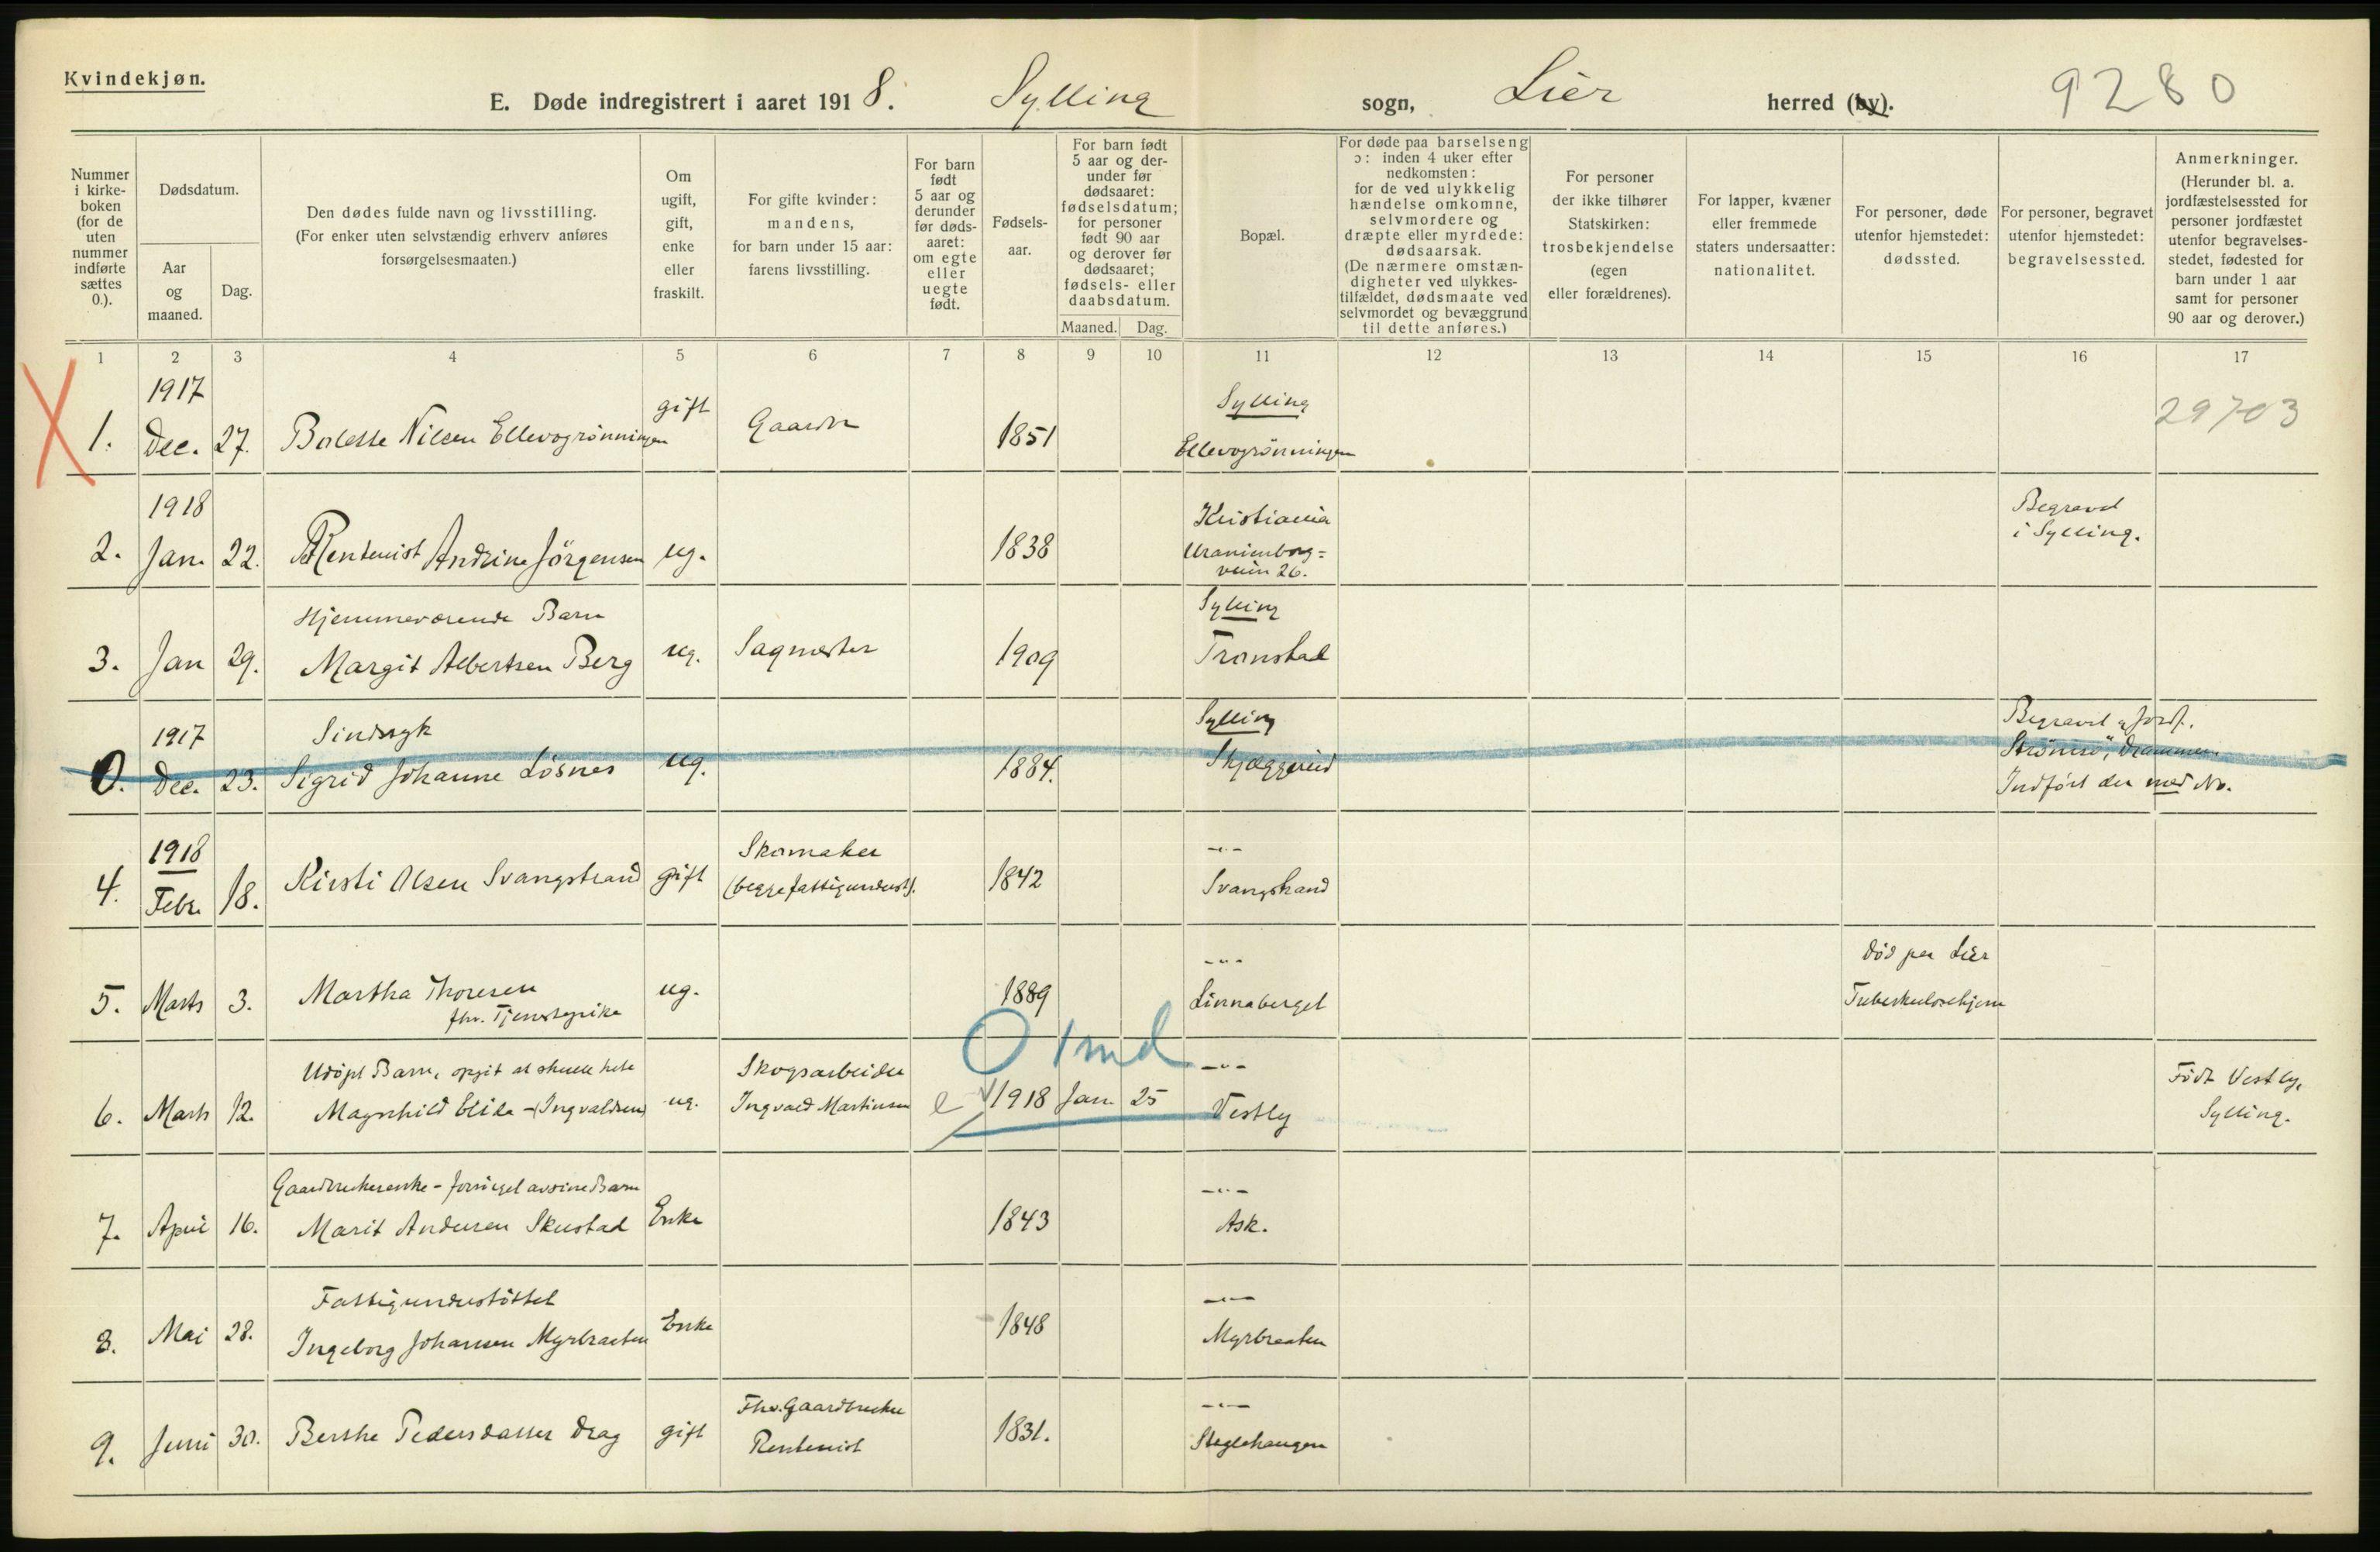 Kvindekjøn.
E. Døde indregistrert i aaret 1918. Sylling sogn, Lier herred (by). 9280
Nummer i kirke-boken (for de uten nummer indførte sættes 0.).
Dødsdatum.
Aar og maaned.
Dag.
Den dødes fulde navn og livsstilling.
(For enker uten selvstændig erhverv anføres forsørgelsesmaaten.)
Om ugift, gift, enke eller fraskilt.
For gifte kvinder: mandens, for barn under 15 aar: farens livsstilling.
For barn født 5 aar og derunder før døds-aaret: om egte eller uegte født.
Fødsels-aar.
For barn født 5 aar og der-under før dødsaaret: fødselsdatum; for personer født 90 aar og derover før dødsaaret; fødsels- eller daabsdatum.
Maaned. Dag.
Bopæl.
For døde paa barselseng ɔ: inden 4 uker efter nedkomsten: for de ved ulykkelig hændelse omkomne, selvmordere og dræpte eller myrdede: dødsaarsak. (De nærmere omstæn-digheter ved ulykkes-tilfældet, dødsmaate ved selvmordet og bevæggrund til dette anføres.)
For personer der ikke tilhører Statskirken: trosbekjendelse (egen eller forældrenes).
For lapper, kvæner eller fremmede staters undersaatter: nationalitet.
For personer, døde utenfor hjemstedet: dødssted.
For personer, begravet utenfor hjemstedet: begravelsessted.
Anmerkninger. (Herunder bl. a. jordfæstelsessted for personer jordfæstet utenfor begravelses-stedet, fødested for barn under 1 aar samt for personer 90 aar og derover.)
1 2 3 4 5 6 7 8 9 10 11 12 13 14 15 16 17
1917 Sylling
1. Dec. 27. Bolette Nilsen Ellevogrønningen gift Gaardbr 1851 Ellevogrønningen 29703
1918 Kristiania Begravet
2. Jan. 22. Rentenist Andrine Jörgensen ug. 1838 Uranienborg= i Sylling.
veien 26.
Hjemmeværende Barn Sylling
3. Jan 29. Margit Albertsen Berg ug. Sagmester 1909 Tronstad
1917 Sindssyk Sylling Begravet & Jordf.
0. Dec. 23. Sigrid Johanne Løsnes ug. 1884. Skjæggerud Strømsø, Drammen.
Indført der med No.
1918 Skomaker -"-
4. Febr. 18. Kirsti Olsen Svangstrand gift (begge fattigunderst). 1842 Svangstrand
-"- død paa Lier
5. Marts 3. Martha Thoresen ug. 1889 Linnaberget Tuberkulosehjem
fhv. Tjenestepike
0 1 md
Udöpt Barn, opgit at skulle hete Skogsarbeider -"- Födt Vestly,
6. Marts 12. Magnhild Elida - (Ingvaldsen) ug. Ingvald Martinsen e 1918 Jan. 25 Vestly Sylling.
Gaardbrukerenke - forsörget av sine Barn -"-
7. April 16. Marit Andersen Skustad Enke 1843 Ask.
Fattigunderstöttet -"-
8. Mai 28. Ingeborg Johansen Myrbraaten Enke 1848 Myrbraaten
Fhv. Gaardbruker -"-
9. Juni 30. Berthe Pedersdatter Drag gift Rentenist 1831. Steglehaugen